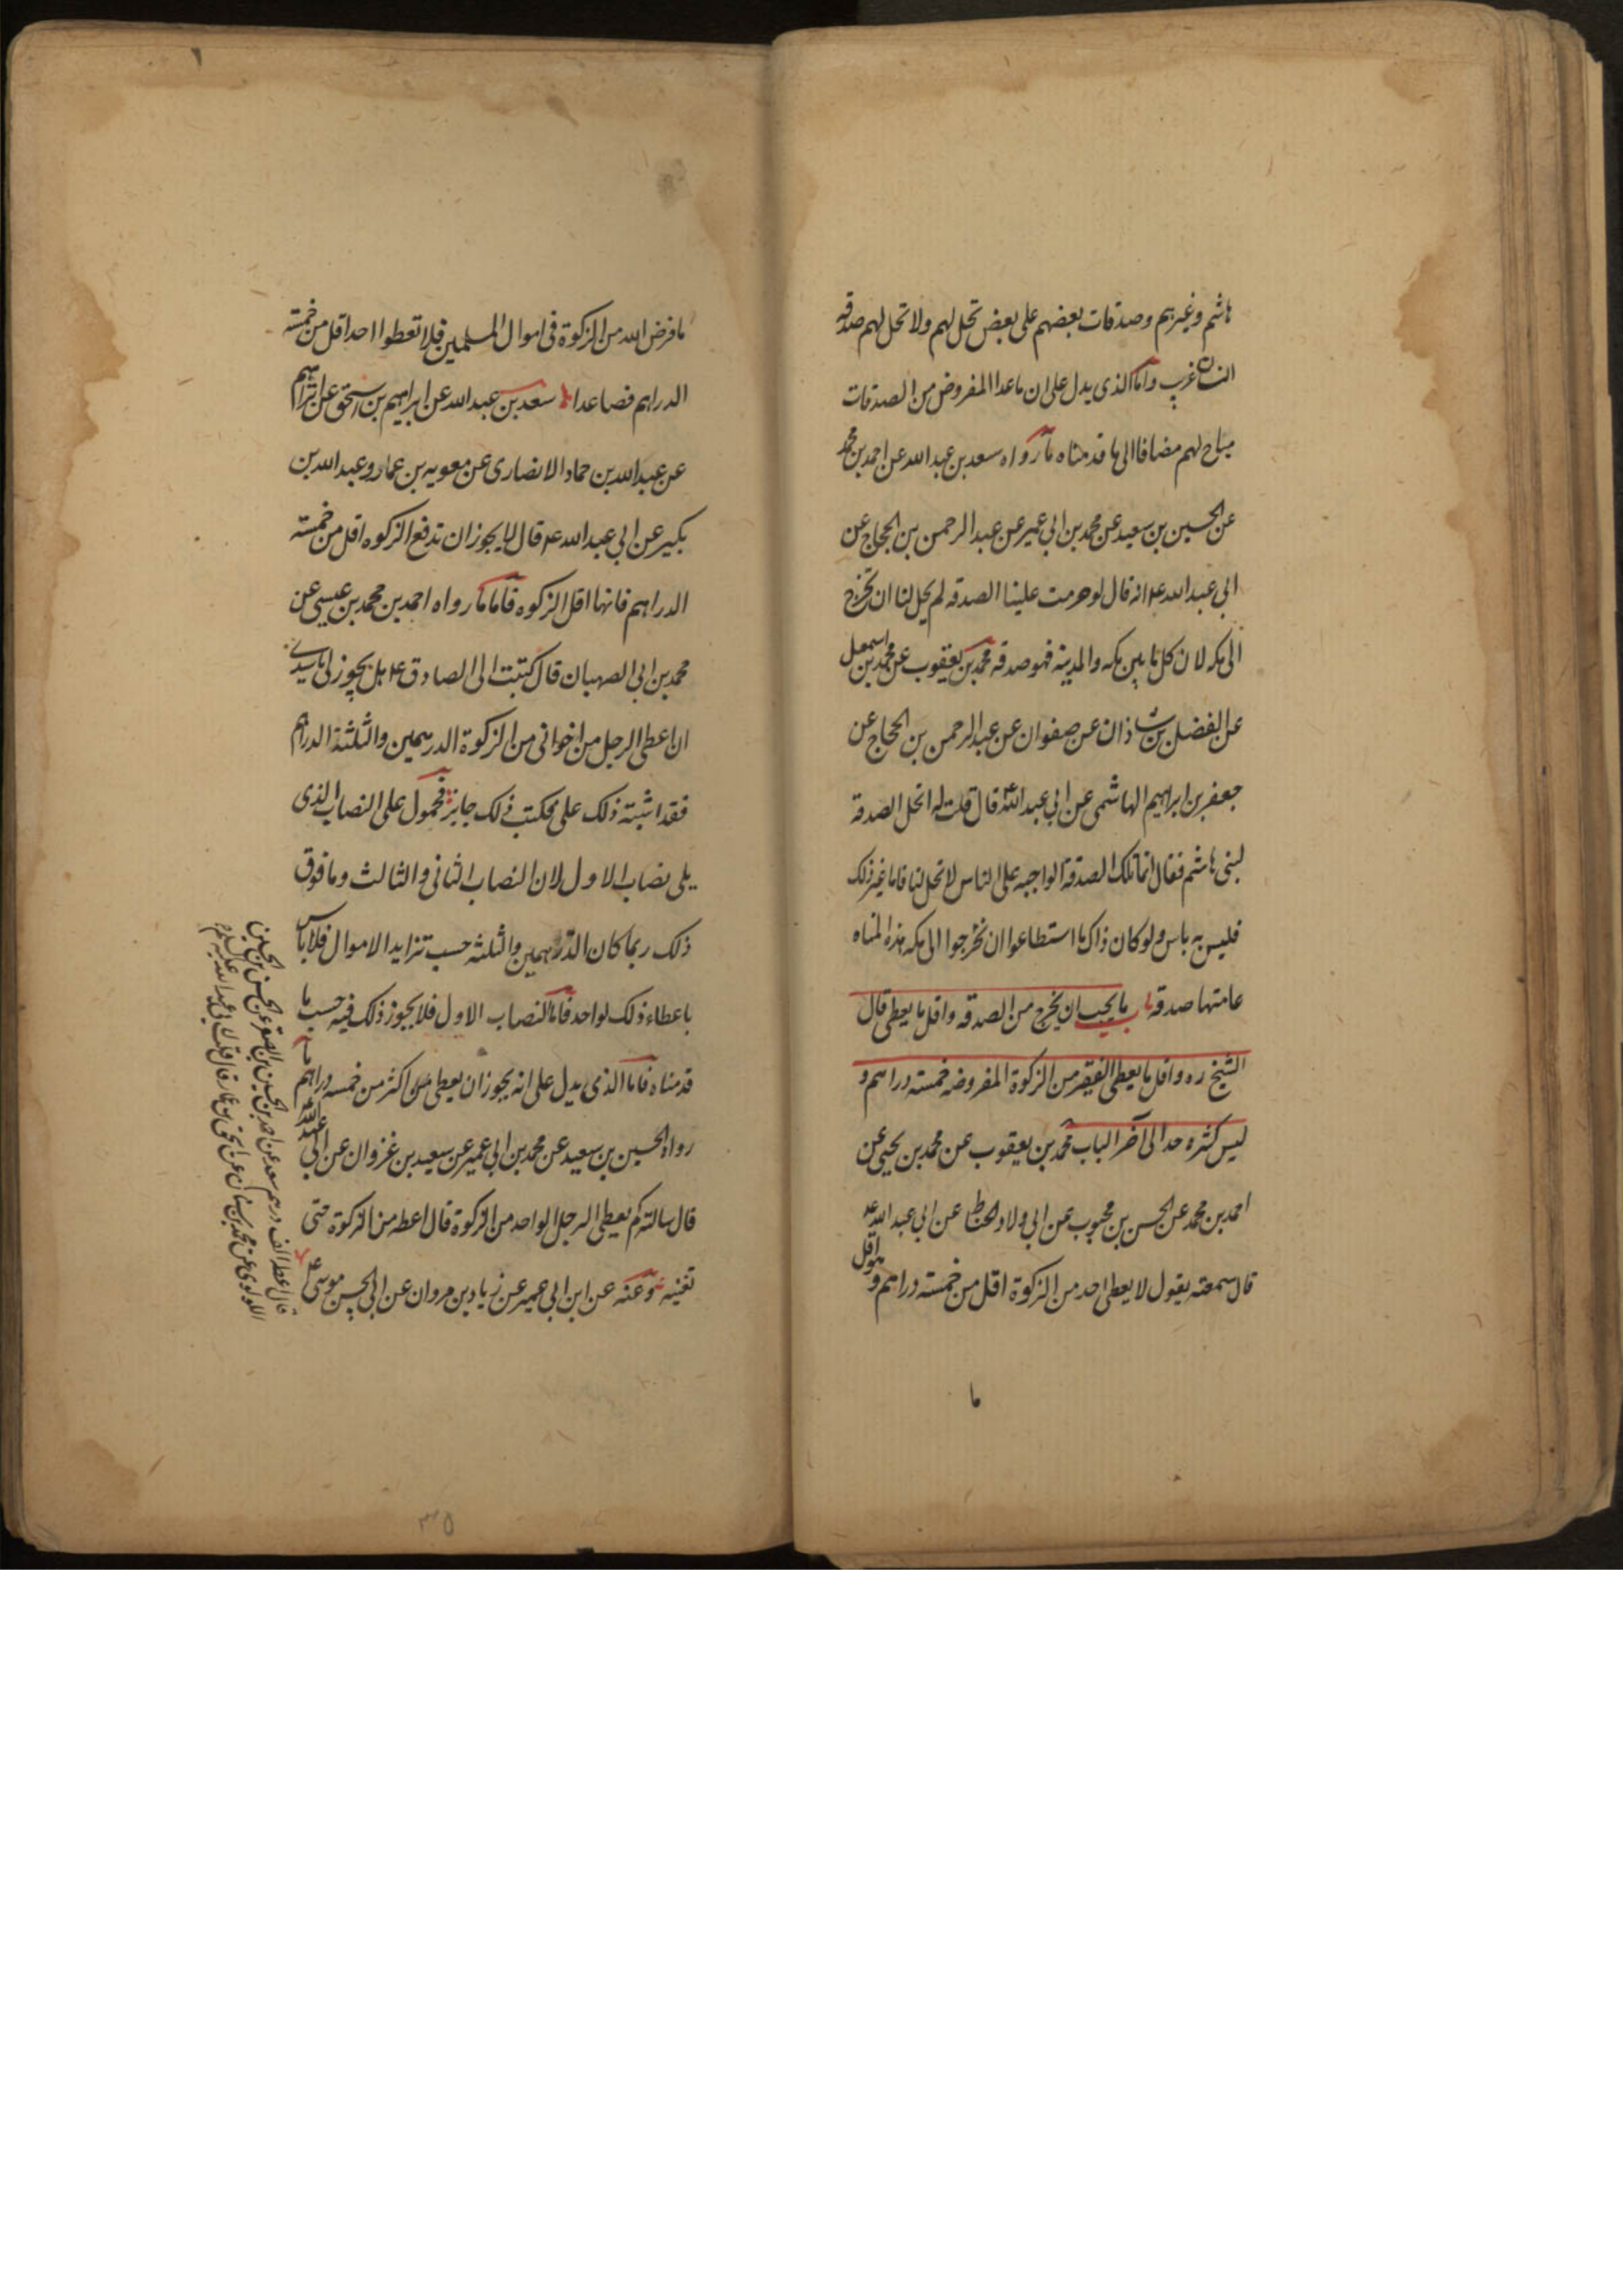 هاشم وغيرهم وصدقات بعضهم على بعض تحل لهم ولا تحل لهم صدقة
انسان غريب واما الذى يدل على ان ما عدا المفروض من الصدقات
مباح لهم مضافا الى ما قدمناه ما رواه سعد بن عبد الله عن احمد بن محمد
عن الحسين بن سعيد عن محمد بن ابى عمير عن عبد الرحمن بن الحجاج عن
ابى عبد الله ع انه قال لو حرمت علينا الصدقه لم يحل لنا ان نخرج
الى مكه لان كل ما بين مكه والمدينه فهو صدقه محمد بن يعقوب عن محمد بن اسمعيل
عن الفضل بن شاذان عن صفوان عن عبد الرحمن بن الحجاج عن
جعفر بن ابراهيم الهاشمى عن ابى عبد الله ع قال قلت له اتحل الصدقة
لبنى هاشم فقال انما تلك الصدقة الواجبه على الناس لا تحل لنا فاما غير ذلك
فليس به باس ولو كان ذاك ما استطاعوا ان يخرجوا الى مكه هذه المياه
عامتها صدقه باب ما يجب ان يخرج من الصدقه واقل ما يعطى قال
الشيخ ره واقل ما يعطى الفقير من الزكوة المفروضه خمسته دراهم و
ليس لكثره حد الى آخر الباب محمد بن يعقوب عن محمد بن يحيى عن
احمد بن محمد عن الحسن بن محبوب عن ابى ولاد الحناط عن ابى عبد الله ع
قال سمعته يقول لا يعطى احد من الزكوة اقل من خمسته دراهم وهو اقل
ما
ما فرض الله من الزكوة فى اموال المسلمين فلا تعطوا احدا اقل من خمسته
الدراهم فصاعدا سعد بن عبد الله عن ابراهيم بن اسحق عن ابراهيم
عن عبد الله بن حماد الانصارى عن معويه بن عمار وعبد الله بن
بكير عن ابى عبد الله ع قال لا يجوز ان تدفع الزكوه اقل من خمسته
الدراهم فانها اقل الزكوه فاما ما رواه احمد بن محمد بن عيسى عن
محمد بن ابى الصهبان قال كتبت الى الصادق ع هل يجوز لى يا سيدى
ان اعطى الرجل من اخوانى من الزكوة الدرهمين والثلثة الدراهم
فقد اشتبه ذلك على فكتب ذلك جايز فمحمول على النصاب الذى
يلى نصاب الاول لان النصاب الثانى والثالث وما فوق
ذلك ربما كان الدرهمين والثلثه حسب تزايد الاموال فلا باس
باعطاء ذلك لواحد فاما النصاب الاول فلا يجوز ذلك فيه حسب ما
قدمناه فاما الذى يدل على انه يجوز ان يعطى اكثر من خمسه دراهم ما
رواه الحسين بن سعيد عن محمد بن ابى عمير عن سعيد بن غزوان عن ابى عبد الله
قال سالته كم يعطى الرجل الواحد من الزكوة قال اعطه من الزكوة حتى
تغنيه وعنه عن ابن ابى عمير عن زياد بن مروان عن ابى الحسن موسى ع
قال اعطه الف درهم سعد عن احمد بن الحسين بن الصقر عن الحسن بن الحسين
اللولوى عن محمد بن سنان عن اسحق بن عمار قال قلت لابى عبد الله عليه السلام
٣٥